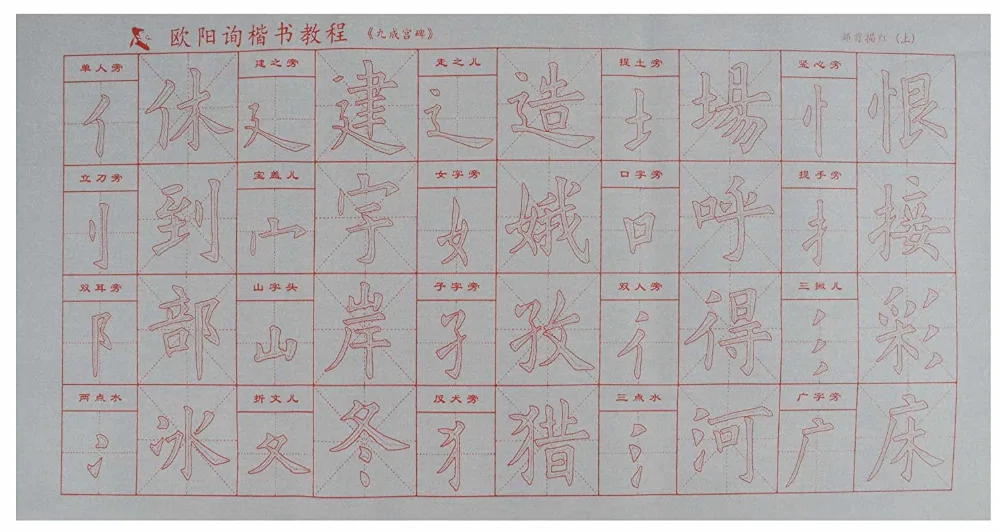 欧阳询楷书教程《九成宫碑》 部首描红（上）
单人旁 建之旁 走之儿 提土旁 竖心旁
亻 休 廴 建 辶 造 土 場 忄 恨
立刀旁 宝盖儿 女字旁 口字旁 提手旁
刂 到 宀 字 女 娥 口 呼 扌 接
双耳旁 山字头 子字旁 双人旁 三撇儿
阝 部 山 岸 子 孜 彳 得 彡 彩
两点水 折文儿 反犬旁 三点水 广字旁
冫 冰 夂 冬 犭 猎 氵 河 广 床